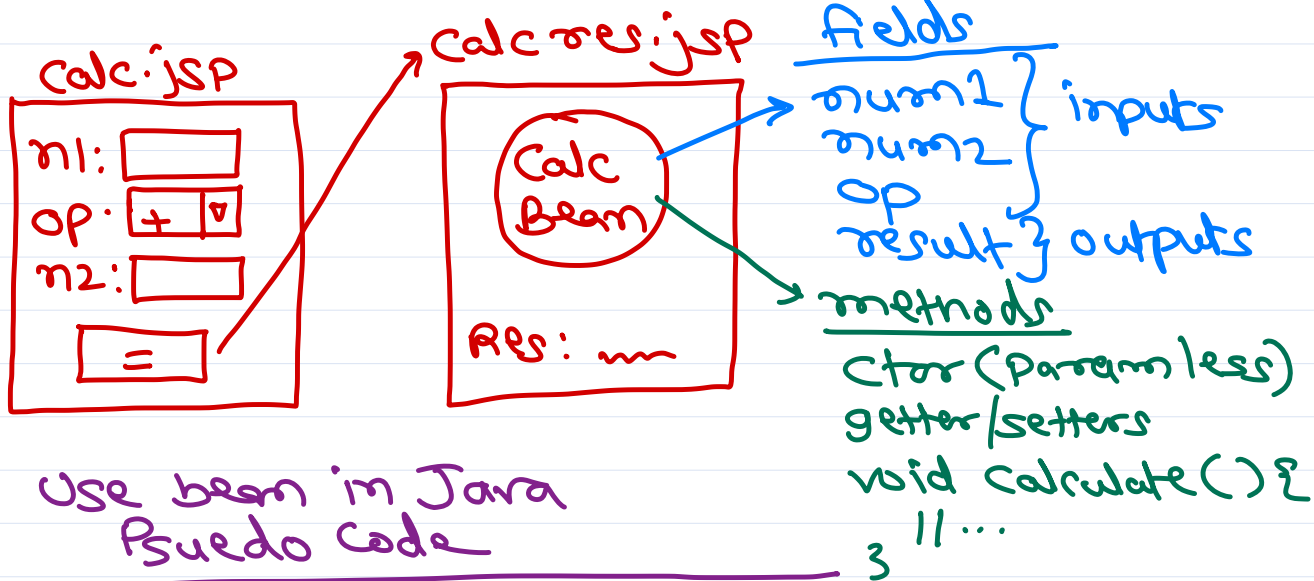 calc.jsp
n1:
op: +
n2:
=
calcres.jsp
Calc
Bean
Res:
fields
num1
num2
op
} inputs
result } outputs
methods
ctor(Paramless)
getter/setters
void calculate() {
//...
}
Use bean in Java
Psuedo Code